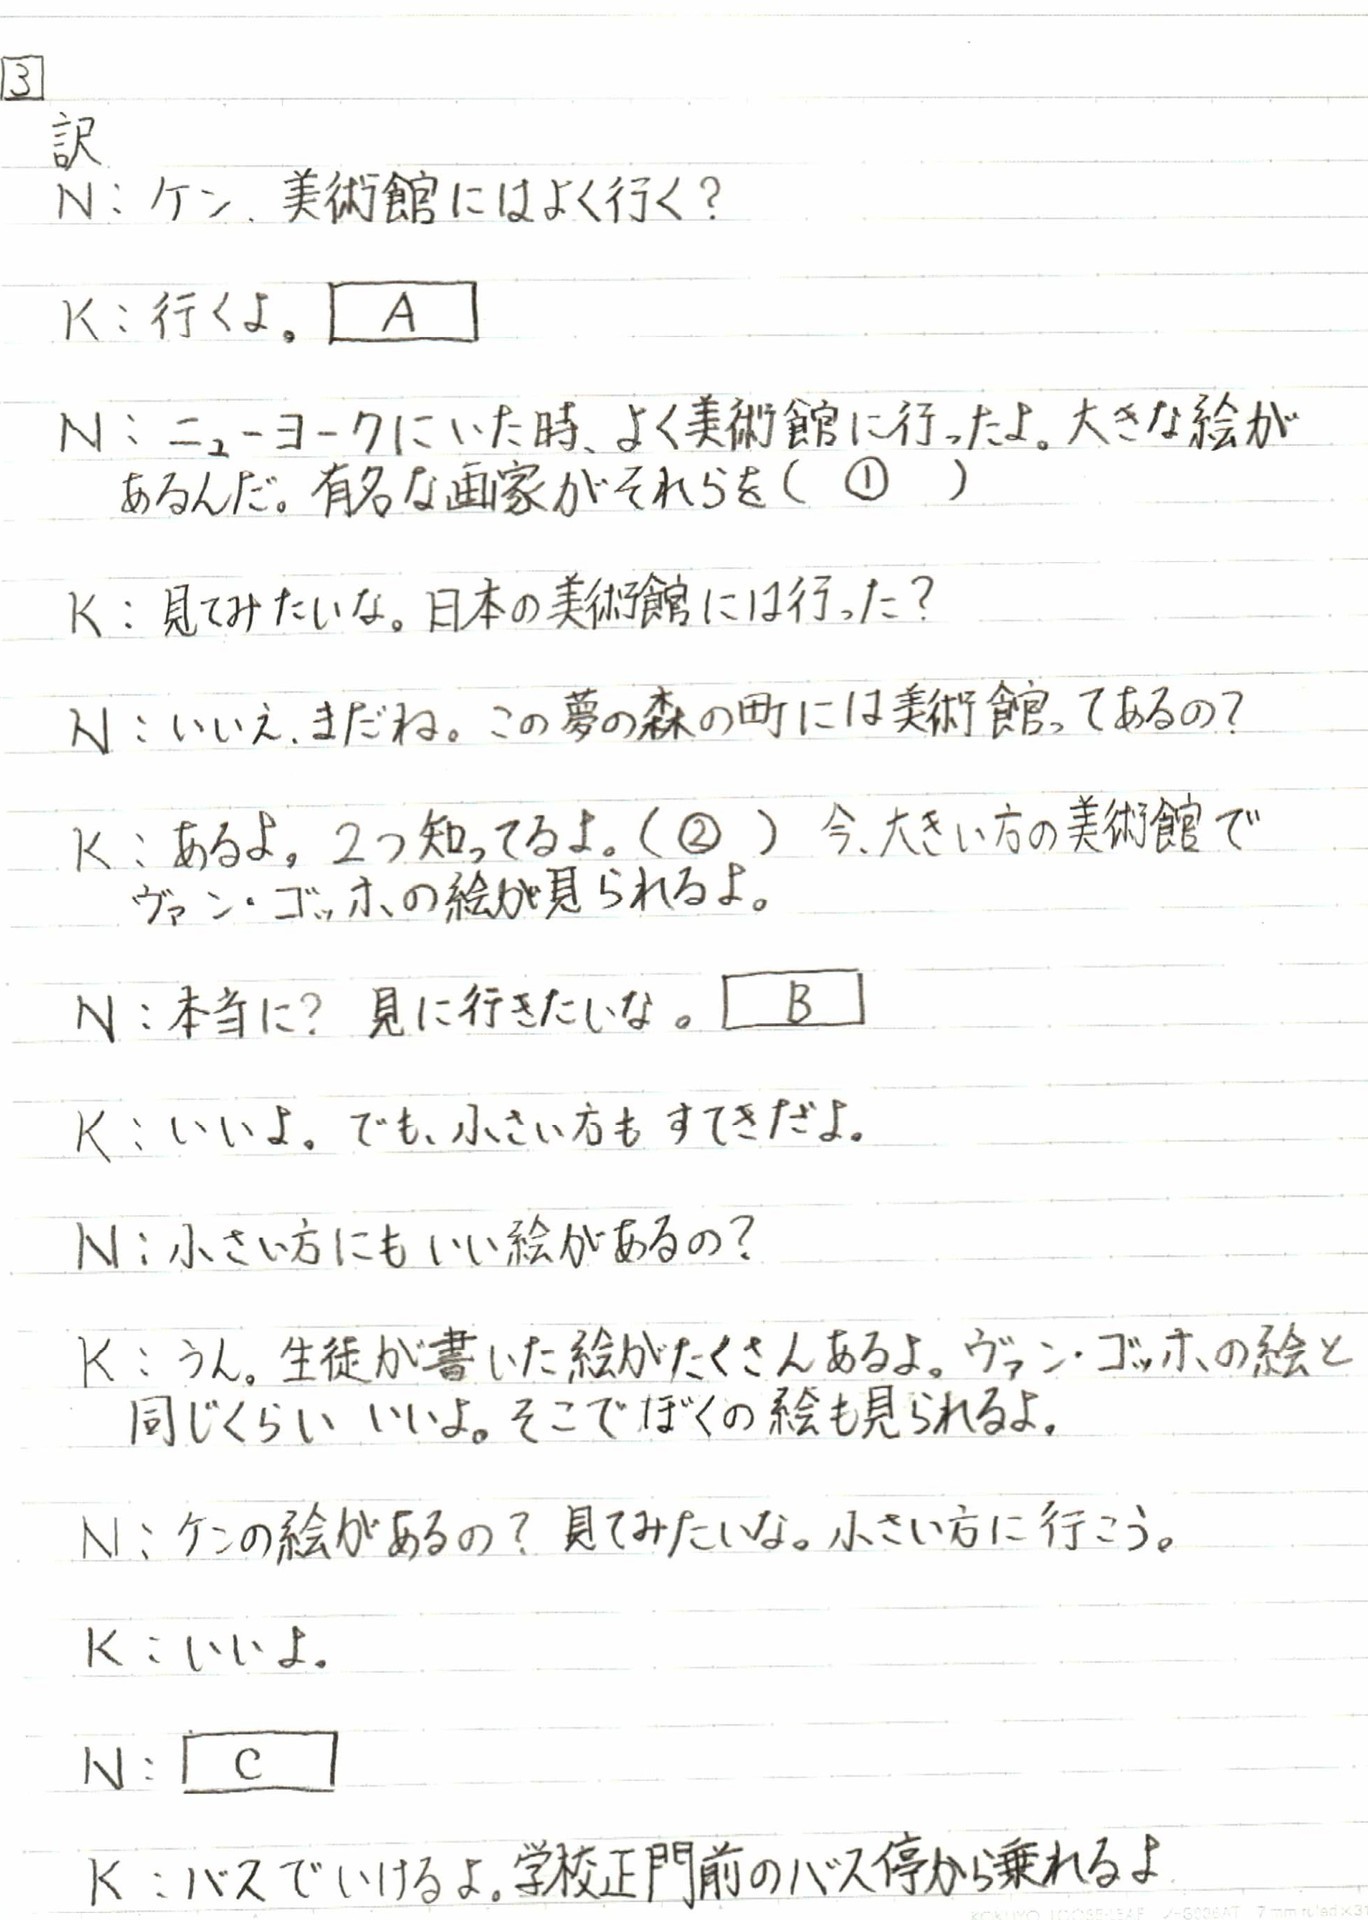 3
訳
N：ケン、美術館にはよく行く？
K：行くよ。 A
N：ニューヨークにいた時、よく美術館に行ったよ。大きな絵が
あるんだ。有名な画家がそれらを（ ① ）
K：見てみたいな。日本の美術館には行った？
N：いいえ、まだね。この夢の森の町には美術館ってあるの？
K：あるよ。2つ知ってるよ。（ ② ） 今、大きい方の美術館で
ヴァン・ゴッホの絵が見られるよ。
N：本当に？ 見に行きたいな。 B
K：いいよ。でも、小さい方もすてきだよ。
N：小さい方にもいい絵があるの？
K：うん。生徒が書いた絵がたくさんあるよ。ヴァン・ゴッホの絵と
同じくらい いいよ。そこでぼくの絵も見られるよ。
N：ケンの絵があるの？ 見てみたいな。小さい方に行こう。
K：いいよ。
N： C
K：バスでいけるよ。学校正門前のバス停から乗れるよ
7 mm ruled